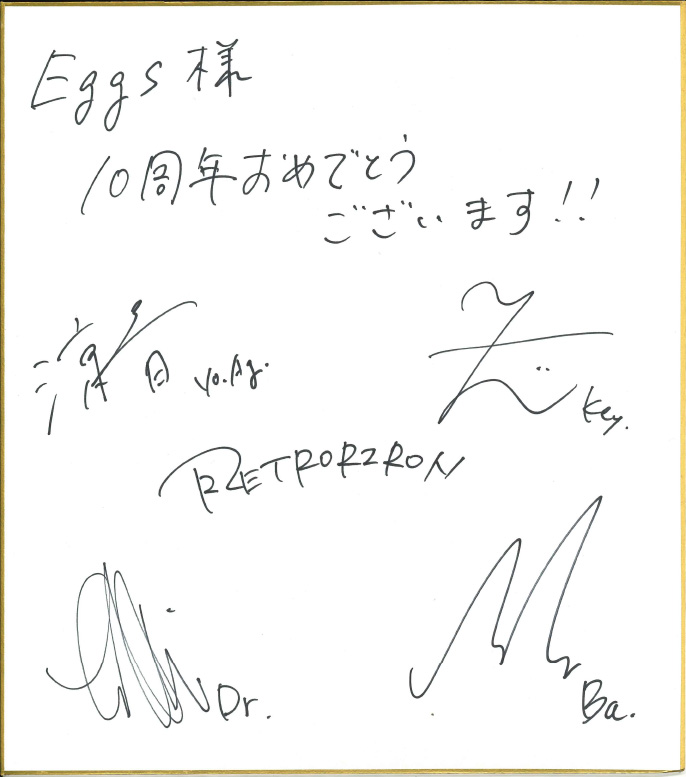 Eggs様
10周年おめでとう
ございます!!
Vo.Ag.
Key.
RETRORIRON
Dr.
Ba.